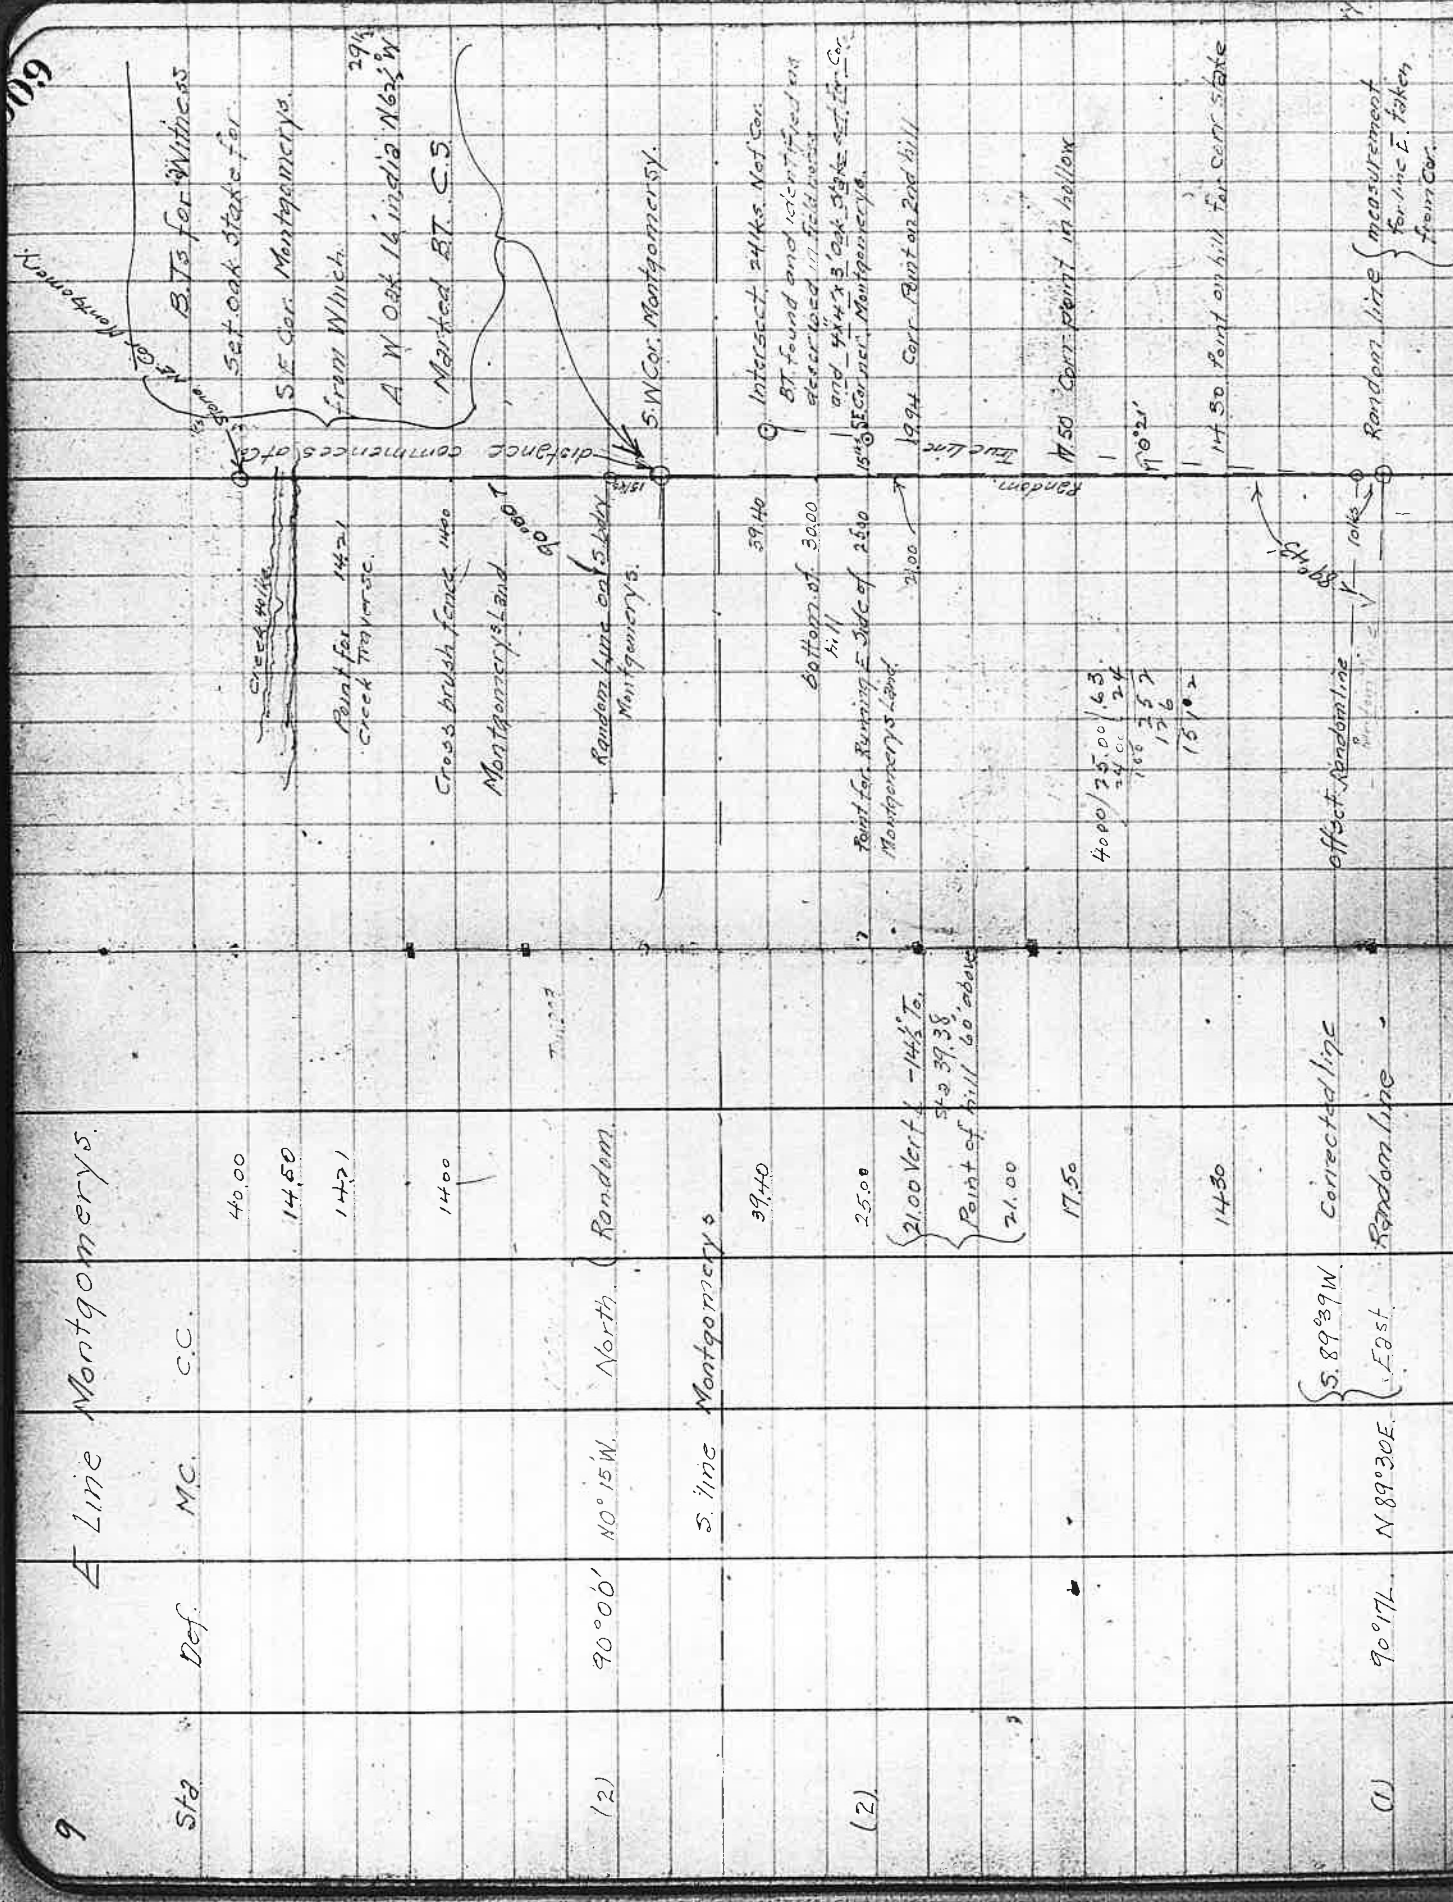 9
E Line Montgomerys.
Sta Def. M.C. C.C.
40.00
14.50
14.21
1400
(2) 90°00' N0°15'W. North { Random
S. line Montgomerys
39.40
(2) 25.00
21.00 Vert ∠ -14½° To.
Sta 39.38
Point of hill 60' above
21.00
17.50
14.30
S. 89°39'W. Corrected line
(1) 90°17'L. N 89°30'E. East Random line
609
NE Cor Montgomery
Stone
B.Ts for Witness
Set oak Stake for
S E Cor. Montgomerys.
from Which
A W Oak 16 in dia N62½°W
Marked B.T. C.S.
Creek 40 lks
Point for 14.21
Creek Traverse.
Cross brush fence 1400
Montgomerys Land
90°00'
distance commences at
Random Line on S. bdry
Montgomerys.
15 lks
S.W Cor. Montgomersy.
39.40 Intersect 24 lks N of Cor.
BT. found and identified as
described in field notes
and 4"x4"x3' Oak Stake set for Cor.
bottom of 30.00
hill
SE Corner Montgomerys.
Point for Running E Side of 25.00
Montgomerys Land
21.00 19.94 Corr. Point on 2nd hill
True Line
Random.
17.50 Corr-point in hollow
4000/25.00/.63
24
252
126
1512
14 30 Point on hill for corr stake
offset Random line
10 lks
Random line { measurement
for line E. taken
from Cor.